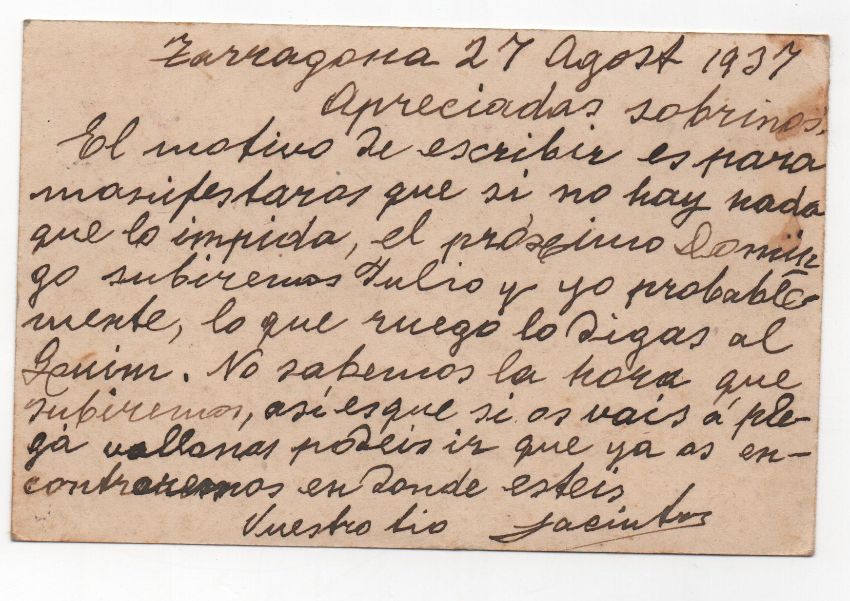 Tarragona 27 Agost 1937
Apreciadas sobrinos.
El motivo de escribir es para
manifestaros que si no hay nada
que lo impida, el próximo Domin-
go subiremos Julio y yo probable-
mente, lo que ruego lo digas al
Quim. No sabemos la hora que
subiremos, así es que si os vais á ple-
gá vallanas podeis ir que ya os en-
contraremos en donde esteis
Vuestro tio Jacinto